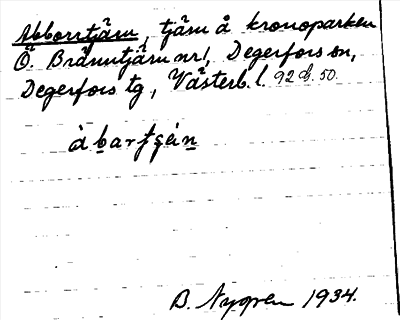 Abborrtjärn, tjärn å kronoparken
Ö. Bränntjärn nr 1, Degerfors sn,
Degerfors tg, Västerb. l. 92 d. 50.
B. Nygren 1934.